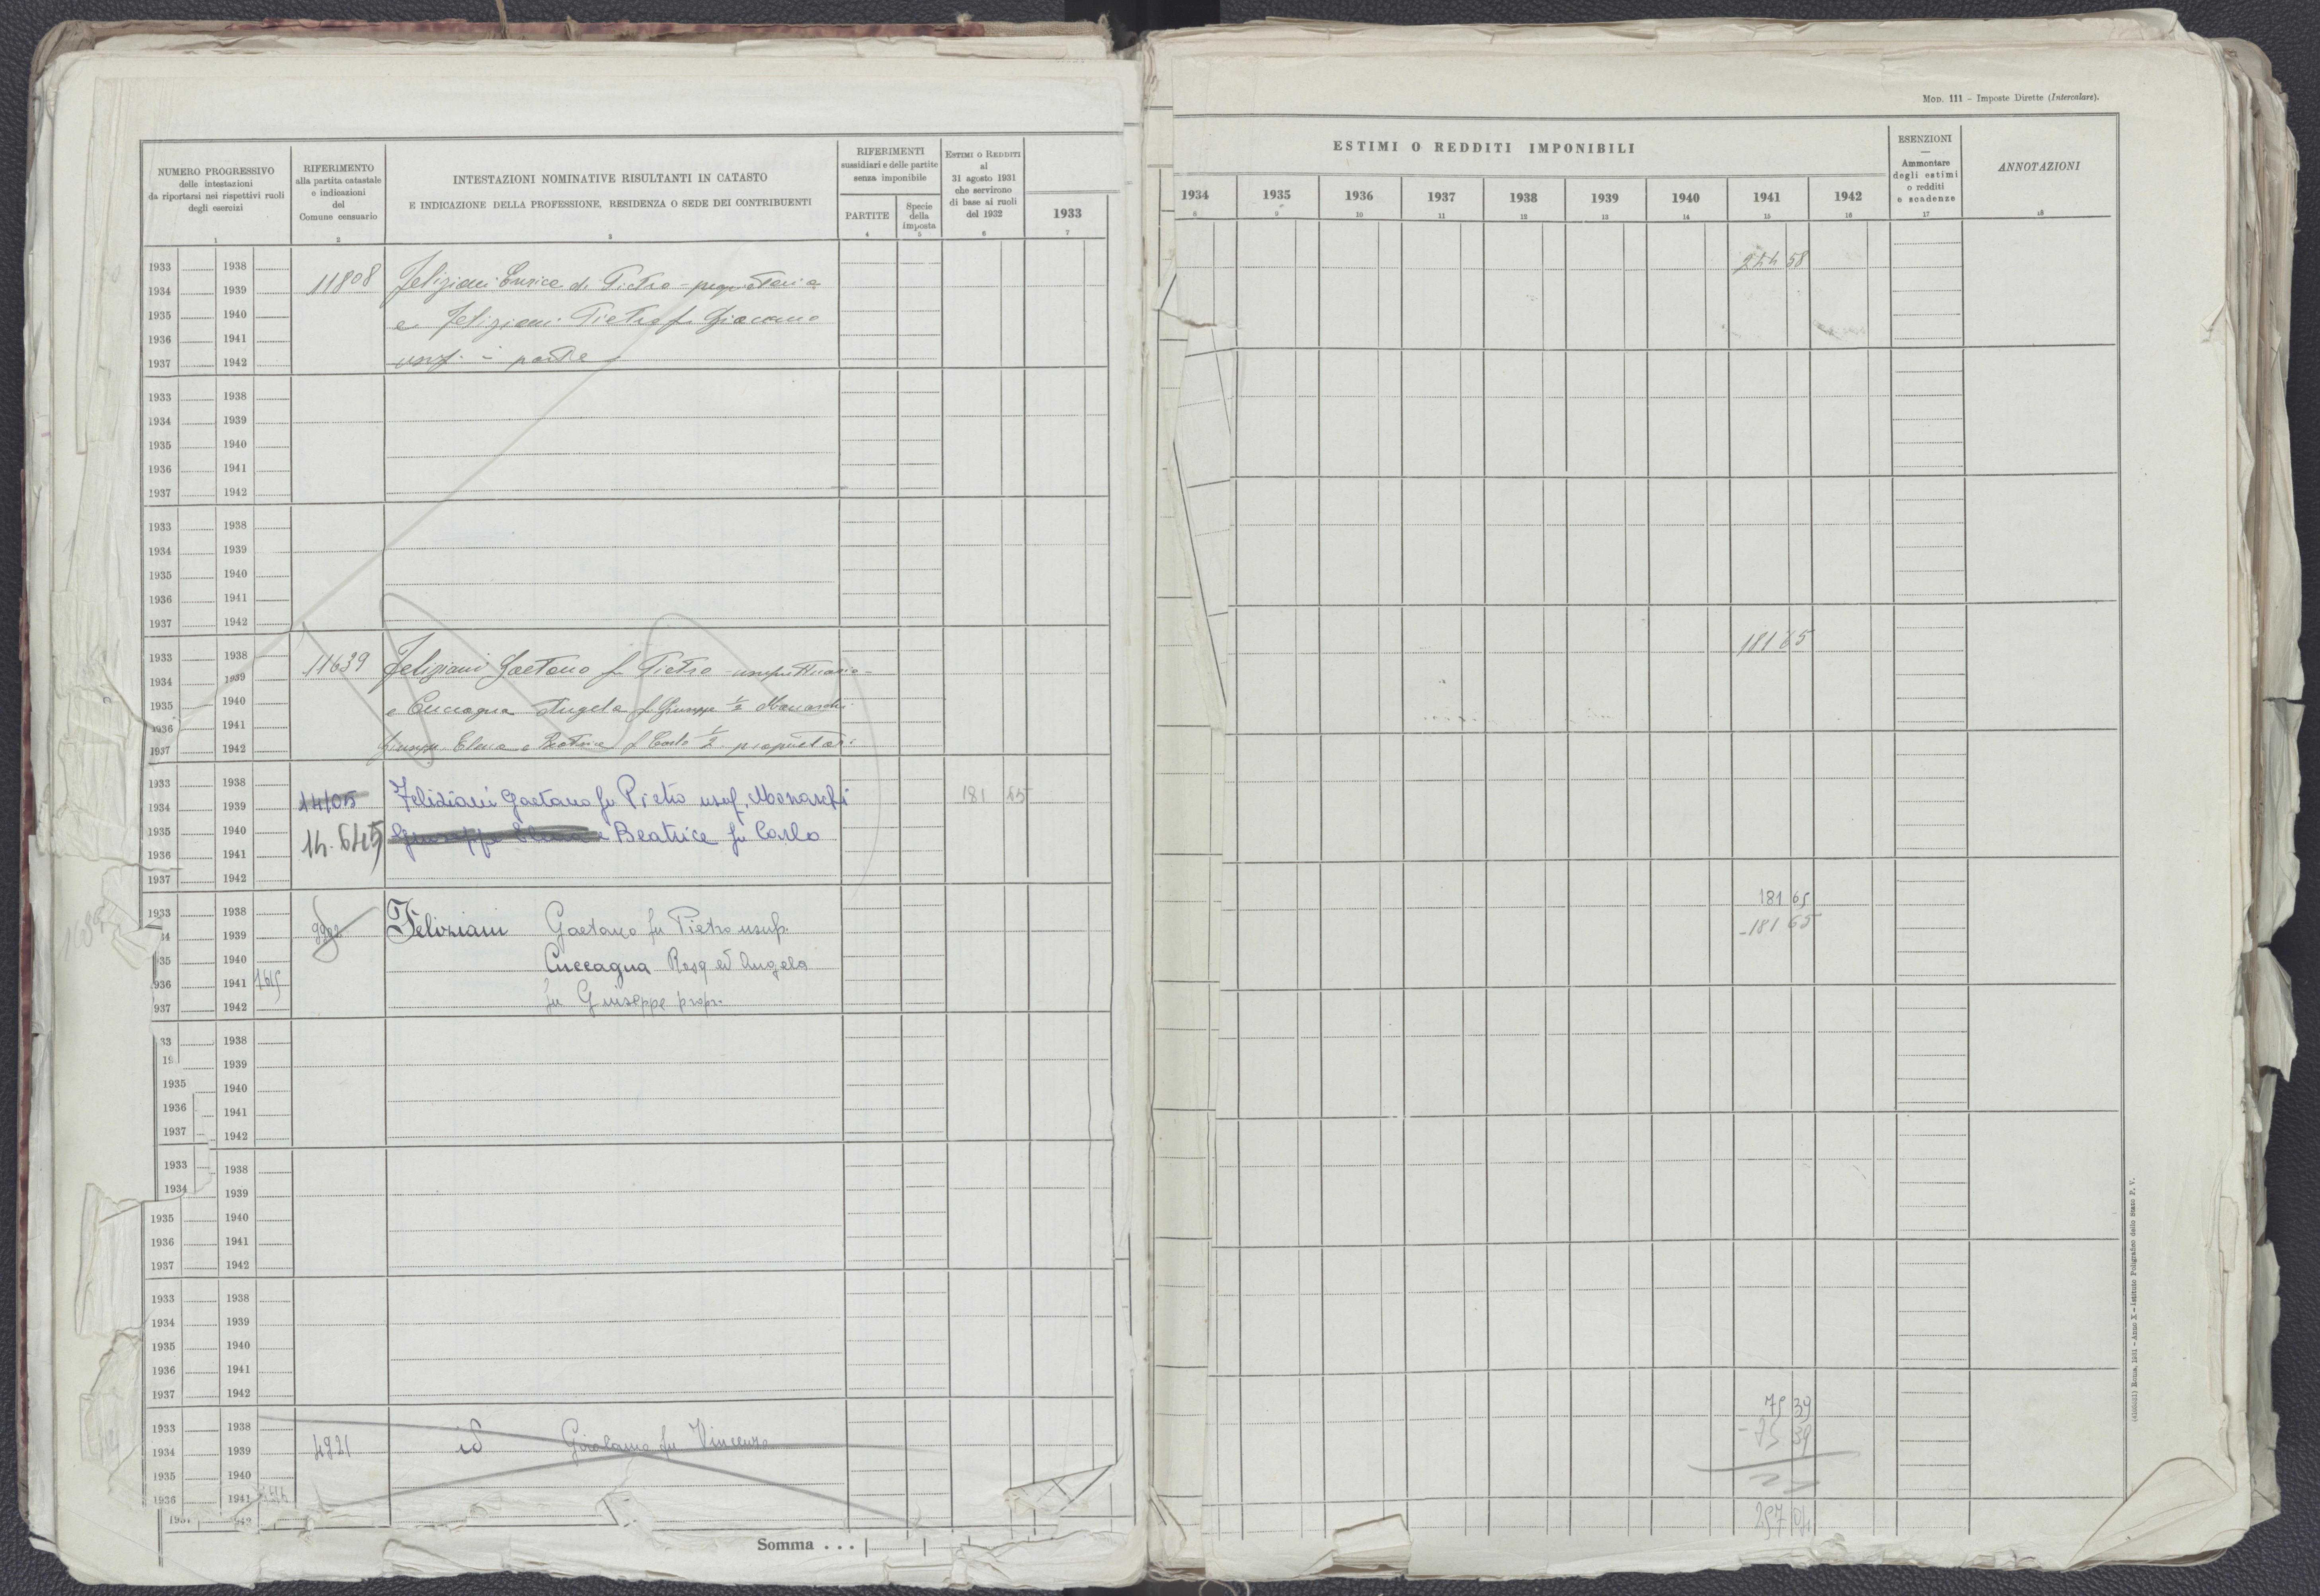 MOD. 111 - Imposte Dirette (Intercalare).
NUMERO PROGRESSIVO
delle intestazioni
da riportarsi nei rispettivi ruoli
degli esercizi
1
RIFERIMENTO
alla partita catastale
e indicazioni
del
Comune censuario
2
INTESTAZIONI NOMINATIVE RISULTANTI IN CATASTO
E INDICAZIONE DELLA PROFESSIONE, RESIDENZA O SEDE DEI CONTRIBUENTI
3
RIFERIMENTI
sussidiari e delle partite
senza imponibile
PARTITE
4
Specie
della
imposta
5
ESTIMI O REDDITI
al
31 agosto 1931
che servirono
di base ai ruoli
del 1932
6
1933
7
ESTIMI O REDDITI IMPONIBILI
1934 1935 1936 1937 1938 1939 1940 1941 1942
8 9 10 11 12 13 14 15 16
ESENZIONI
Ammontare
degli estimi
o redditi
e scadenze
17
ANNOTAZIONI
18
1933 1938
1934 1939
1935 1940
1936 1941
1937 1942
11808 Feliziani Enrica di Pietro - proprietaria
e Feliziani Pietro fu Giacomo
usuf. in parte
244 58
1933 1938
1934 1939
1935 1940
1936 1941
1937 1942
1933 1938
1934 1939
1935 1940
1936 1941
1937 1942
1933 1938
1934 1939
1935 1940
1936 1941
1937 1942
11639 Feliziani Gaetano fu Pietro - usufruttuario -
e Cuccagna Angela fu Giuseppe 1/2 Monarchi
Giuseppe Elena e Beatrice fu Carlo 1/2 proprietari
181 65
1933 1938
1934 1939
1935 1940
1936 1941
1937 1942
14105 Feliziani Gaetano fu Pietro usuf. Monarchi
14.645 Giuseppe Elena e Beatrice fu Carlo
181 45
1933 1938
34 1939
35 1940
936 1941 165
937 1942
Feliziani Gaetano fu Pietro usuf.
Cuccagna Rosa ed Angela
fu Giuseppe propr.
181 65
-181 65
33 1938
19 1939
1935 1940
1936 1941
1937 1942
1933 1938
1934 1939
1935 1940
1936 1941
1937 1942
1933 1938
1934 1939
1935 1940
1936 1941
1937 1942
1933 1938
1934 1939
1935 1940
1936 1941
4821 id Girolamo fu Vincenzo
75 39
- 75 39
Somma . . .
(4105031) Roma, 1931 - Anno X - Istituto Poligrafico dello Stato P. V.